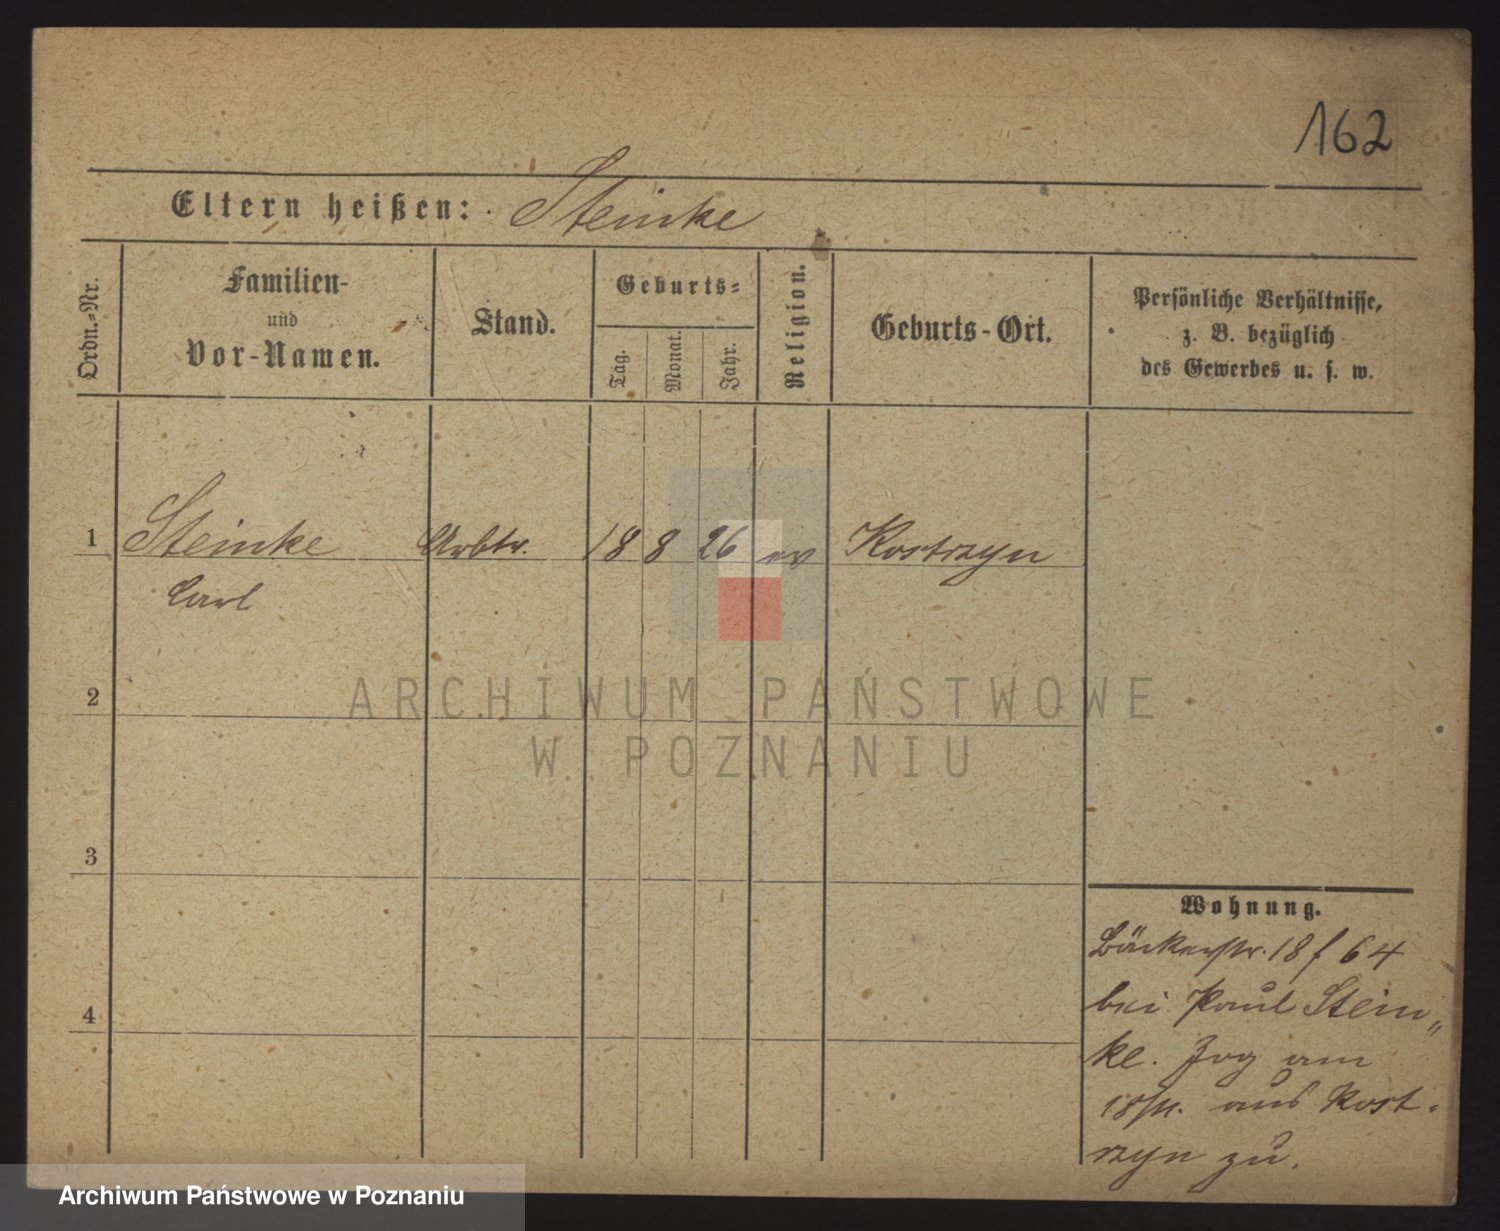 162
Eltern heißen: Steinke
Ordn.-Nr.
Familien-
und
Vor-Namen.
Stand.
Geburts-
Tag.
Monat.
Jahr.
Religion.
Geburts-Ort.
Persönliche Verhältnisse,
z. B. bezüglich
des Gewerbes u. s. w.
1 Steinke Arbtr. 18 8 26 ev Kostrzyn
Carl
2
3
4
Wohnung.
Bäckerstr. 18 f 64
bei Paul Stein„
ke. Zog am
18/11. aus Kost-
rzyn zu.
ARCHIWUM PAŃSTWOWE
W POZNANIU
Archiwum Państwowe w Poznaniu